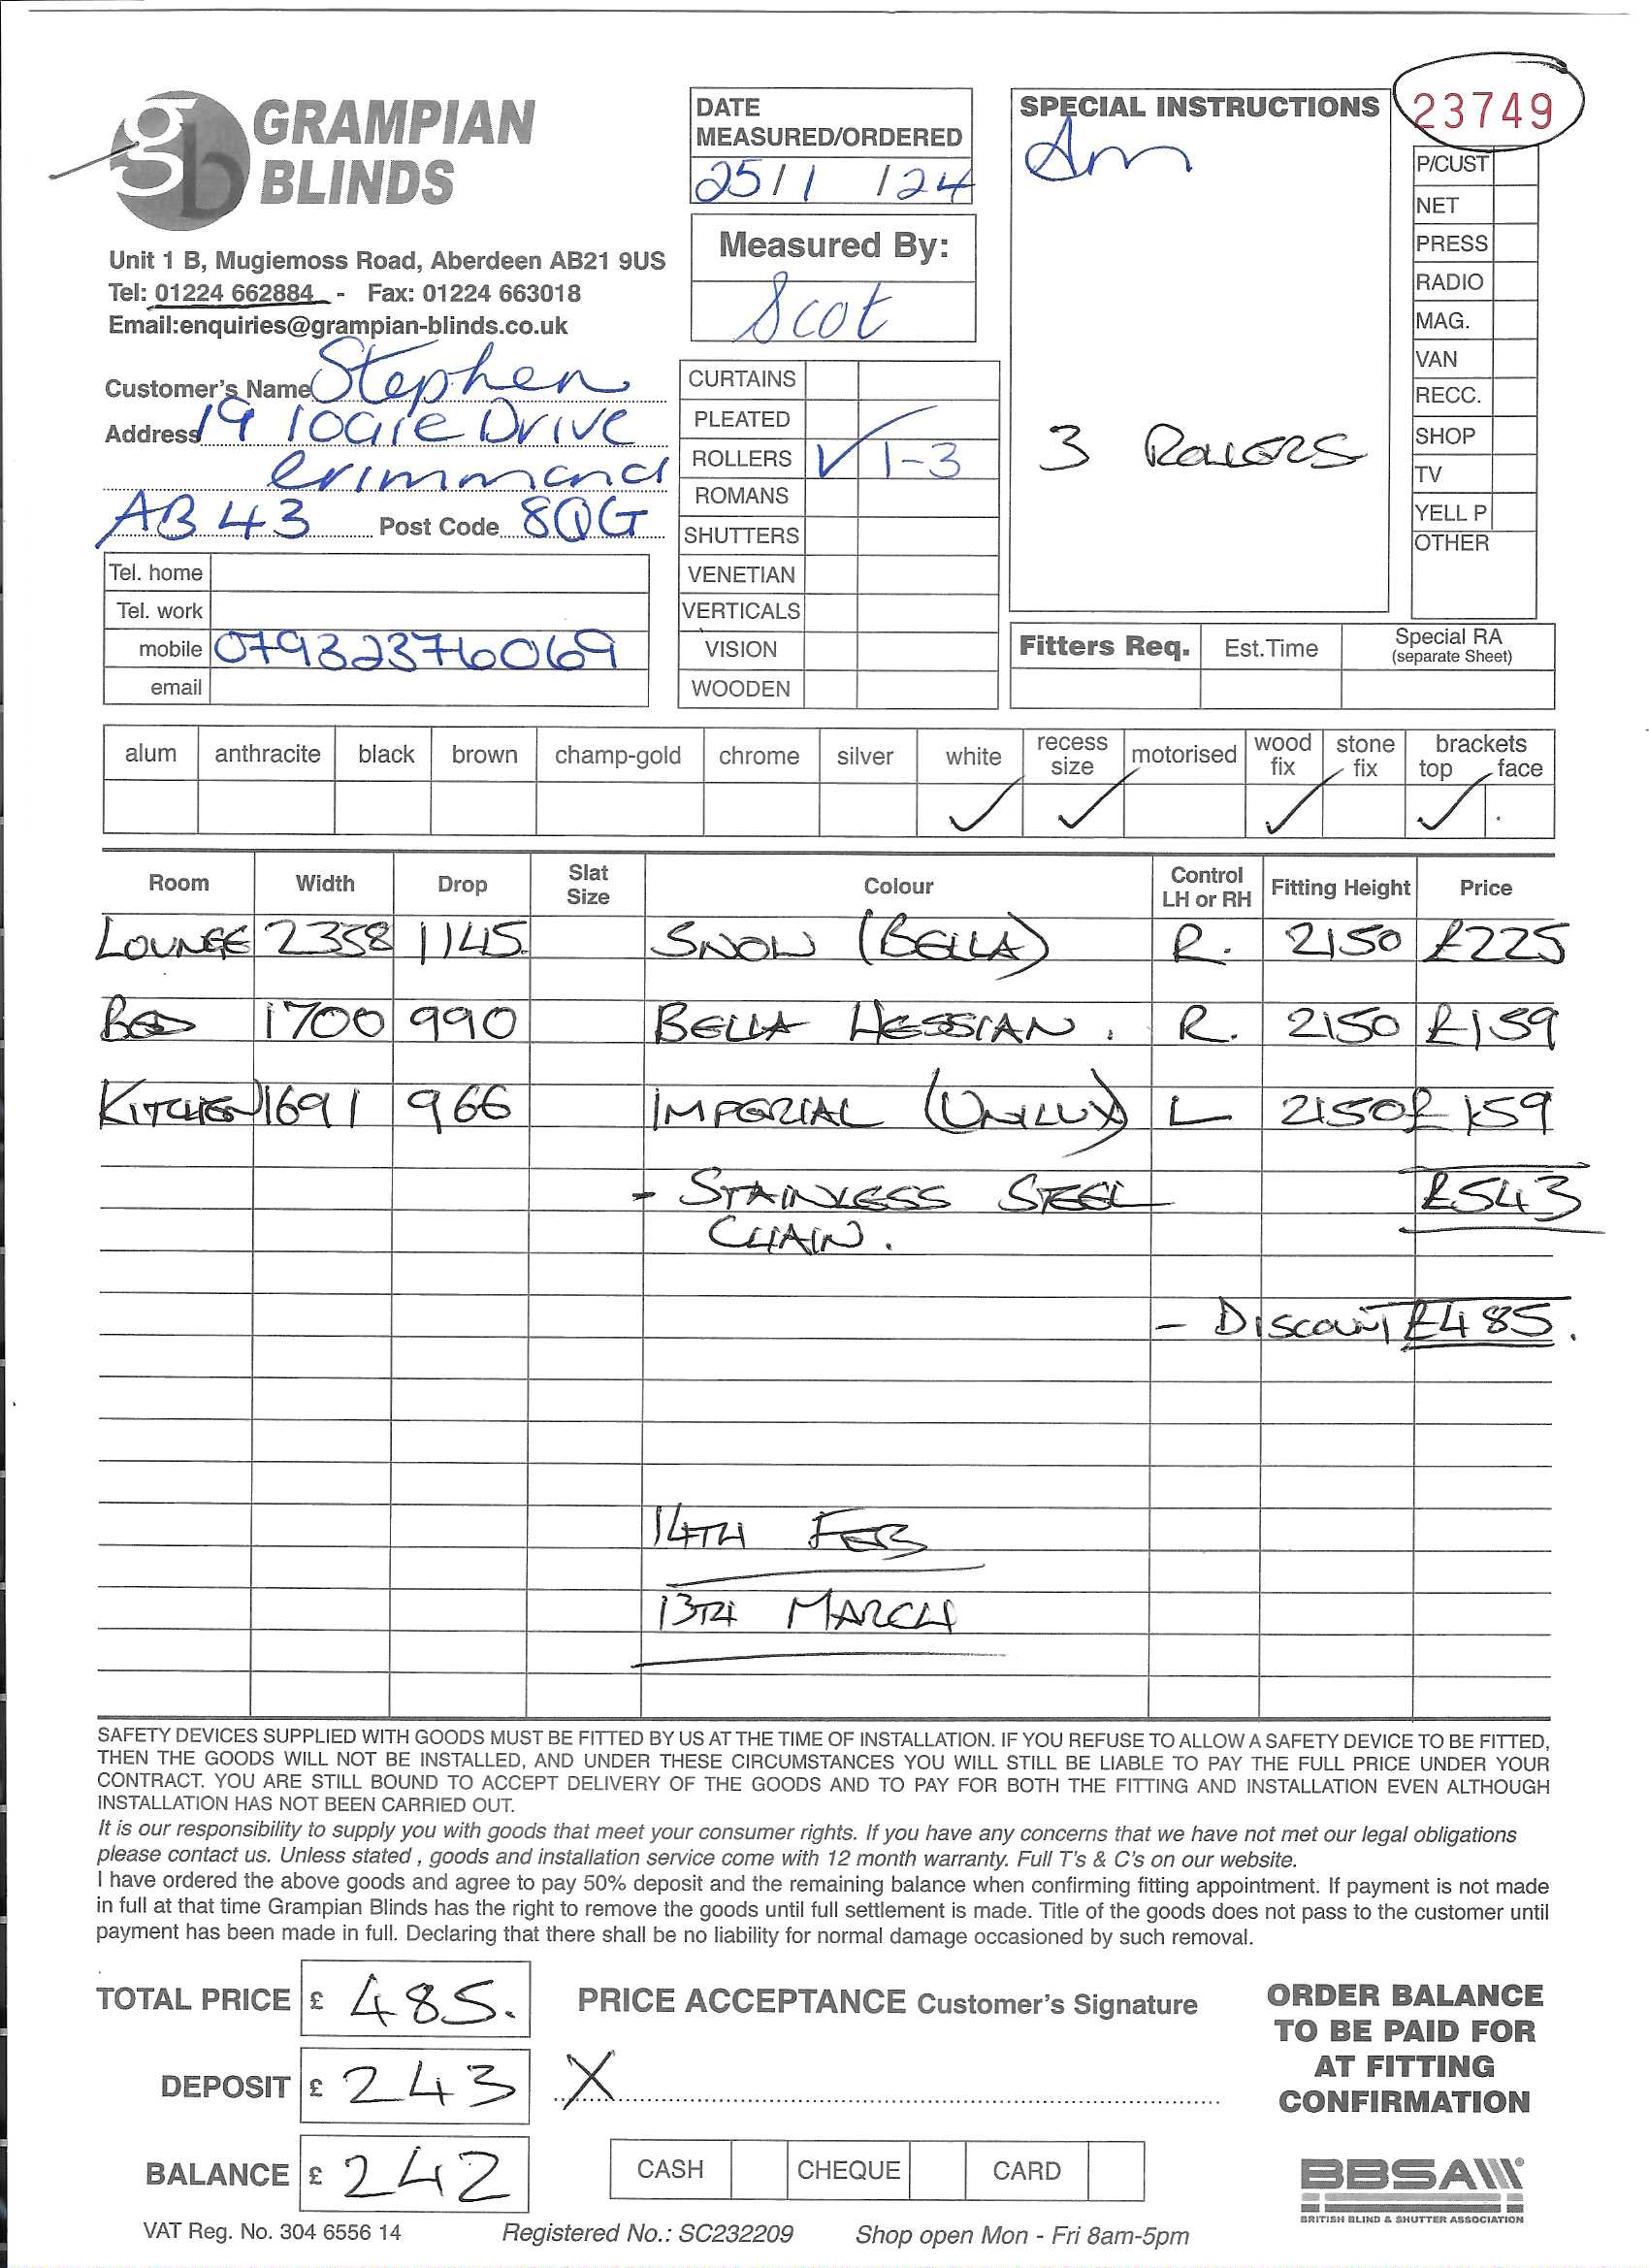 GRAMPIAN
BLINDS
Unit 1 B, Mugiemoss Road, Aberdeen AB21 9US
Tel: 01224 662884 - Fax: 01224 663018
Email:enquiries@grampian-blinds.co.uk
DATE
MEASURED/ORDERED
25/1/24
Measured By:
Scot
SPECIAL INSTRUCTIONS
Am
3 ROLLERS
23749
P/CUST
NET
PRESS
RADIO
MAG.
VAN
RECC.
SHOP
TV
YELL P
OTHER
Customer's Name Stephen
Address 19 logie Drive
Crimmond
AB43 Post Code 8QG
Tel. home
Tel. work
mobile 07932376069
email
CURTAINS
PLEATED
ROLLERS ✓ 1-3
ROMANS
SHUTTERS
VENETIAN
VERTICALS
VISION
WOODEN
Fitters Req. Est.Time Special RA
(separate Sheet)
alum anthracite black brown champ-gold chrome silver white recess size motorised wood fix stone fix brackets top face
✓ ✓ ✓ ✓
Room Width Drop Slat Size Colour Control LH or RH Fitting Height Price
LOUNGE 2358 1145 SNOW (BELLA) R. 2150 £225
BED 1700 990 BELLA HESSIAN. R. 2150 £159
KITCHEN 1691 966 IMPERIAL (UNILUX) L 2150 £159
- STAINLESS STEEL £543
CHAIN.
- DISCOUNT £485.
14TH FEB
13TH MARCH
SAFETY DEVICES SUPPLIED WITH GOODS MUST BE FITTED BY US AT THE TIME OF INSTALLATION. IF YOU REFUSE TO ALLOW A SAFETY DEVICE TO BE FITTED,
THEN THE GOODS WILL NOT BE INSTALLED, AND UNDER THESE CIRCUMSTANCES YOU WILL STILL BE LIABLE TO PAY THE FULL PRICE UNDER YOUR
CONTRACT. YOU ARE STILL BOUND TO ACCEPT DELIVERY OF THE GOODS AND TO PAY FOR BOTH THE FITTING AND INSTALLATION EVEN ALTHOUGH
INSTALLATION HAS NOT BEEN CARRIED OUT.
It is our responsibility to supply you with goods that meet your consumer rights. If you have any concerns that we have not met our legal obligations
please contact us. Unless stated , goods and installation service come with 12 month warranty. Full T's & C's on our website.
I have ordered the above goods and agree to pay 50% deposit and the remaining balance when confirming fitting appointment. If payment is not made
in full at that time Grampian Blinds has the right to remove the goods until full settlement is made. Title of the goods does not pass to the customer until
payment has been made in full. Declaring that there shall be no liability for normal damage occasioned by such removal.
TOTAL PRICE £ 485.
DEPOSIT £ 243
BALANCE £ 242
PRICE ACCEPTANCE Customer's Signature
X
CASH CHEQUE CARD
ORDER BALANCE
TO BE PAID FOR
AT FITTING
CONFIRMATION
BBSA
BRITISH BLIND & SHUTTER ASSOCIATION
VAT Reg. No. 304 6556 14 Registered No.: SC232209 Shop open Mon - Fri 8am-5pm